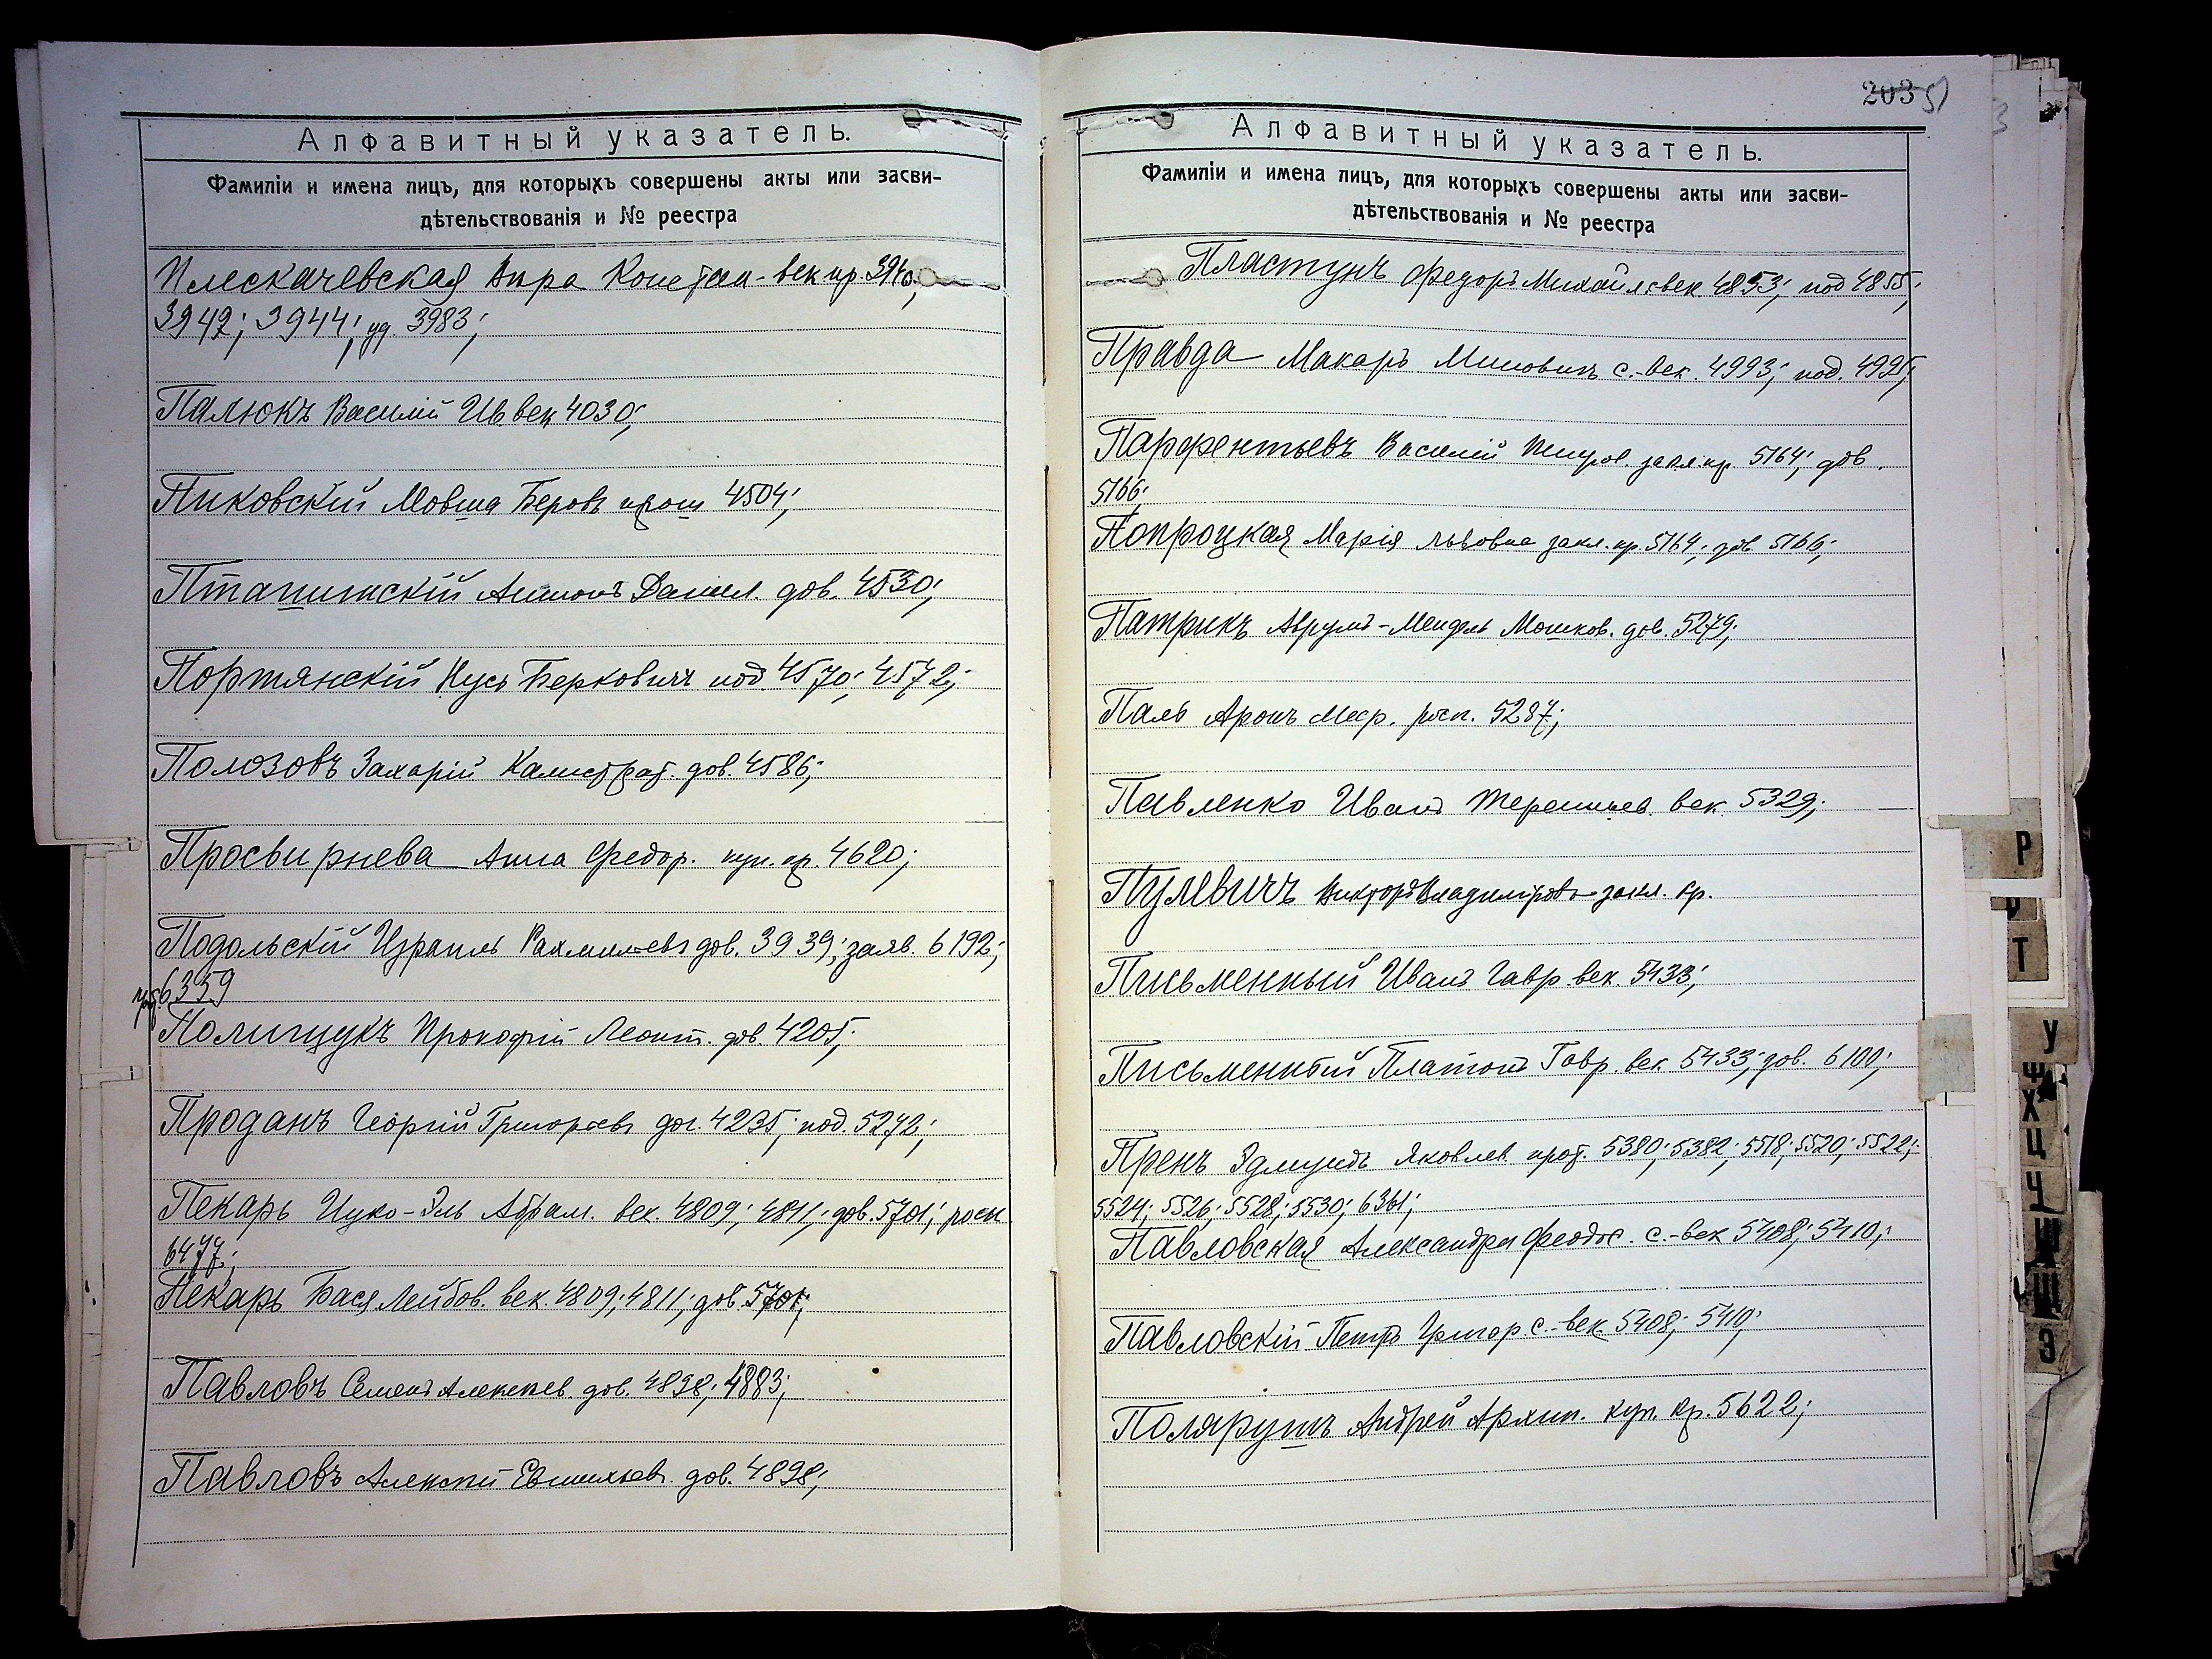 Алфавитный указатель.
Фамиліи и имена лицъ, для которыхъ совершены акты или засви-
дѣтельствованія и № реестра
Плескачевская Вѣра Констан- век пр. 3940;
3942; 3944; уд. 3983;
Палюкъ Василій Ив век 4030;
Пиковскій Мовша Беровъ прот 4504;
Пташинскій Антонъ Данил. дов. 4530;
Портянскій Нусь Берковичъ под. 4570; 4572;
Полозовъ Захарій Калистрат. дов. 4586;
Просвирнева Анна Федор. куп. кр. 4620;
Подольскій Израиль Рахмилевъ дов. 3939; заяв. 6192;
6359
Полищукъ Прокофій Леонт. дов. 4205;
Проданъ Георгій Григорьевъ дог. 4235; под. 5272;
Пекарь Ицко-Эль Абрам. век. 4809; 4811; дов. 5701;
6477;
Пекарь Бася Лейбов. век. 4809; 4811; дов. 5701;
Павловъ Семенъ Алексеев. дов. 4898; 4883;
Павловъ Алексѣй Евтихіев. дов. 4898;
203 51
Алфавитный указатель.
Фамиліи и имена лицъ, для которыхъ совершены акты или засви-
дѣтельствованія и № реестра
Пластунъ Федоръ Михайлов век. 4853; под 4855;
Правда Макаръ Миновичъ с.-век. 4993; под. 4995;
Парфентьевъ Василій закл. кр. 5164; дов.
5166;
Попроцкая Марія Львовна закл. кр. 5164; дов 5166;
Патрикъ Аврумъ-Мендель Мошков. дов. 5279;
Паль Аронъ Меер. росп. 5287;
Павленко Иванъ Терентьев. век. 5329;
Пулевичъ Викторъ Владиміровъ закл. кр.
Письменный Иванъ Гавр. век. 5433;
Письменный Платонъ Гавр. век. 5433; дов. 6100;
Пренъ Эдмундъ Яковлев. прот. 5380; 5382; 5518; 5520; 5522;
5524; 5526; 5528; 5530; 6361;
Павловская Александра Феодос. с.-век 5408; 5410;
Павловскій Петръ Григор. с.-век. 5408; 5410;
Поляруш Андрей Архип. куп. кр. 5622;
Р
Т
У
Ф
Х
Ц
Ч
Ш
Щ
Э